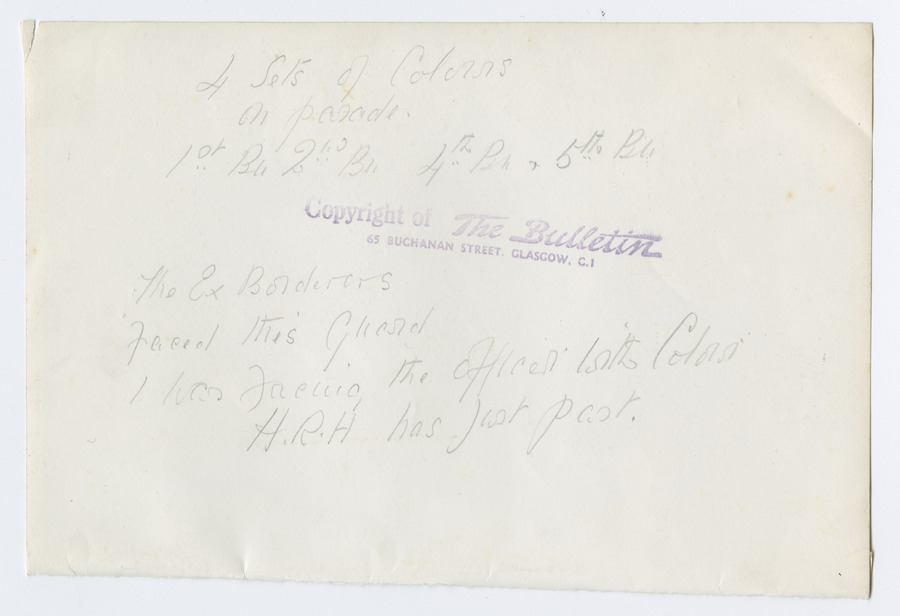 4 Sets of Colours
on parade.
1st Bn 2nd Bn 4th Bn & 5th Bn
Copyright of The Bulletin
65 BUCHANAN STREET, GLASGOW, C.1
The Ex Borderers
Faced this Guard
I was Facing the officer with Colour
H.R.H has Just past.